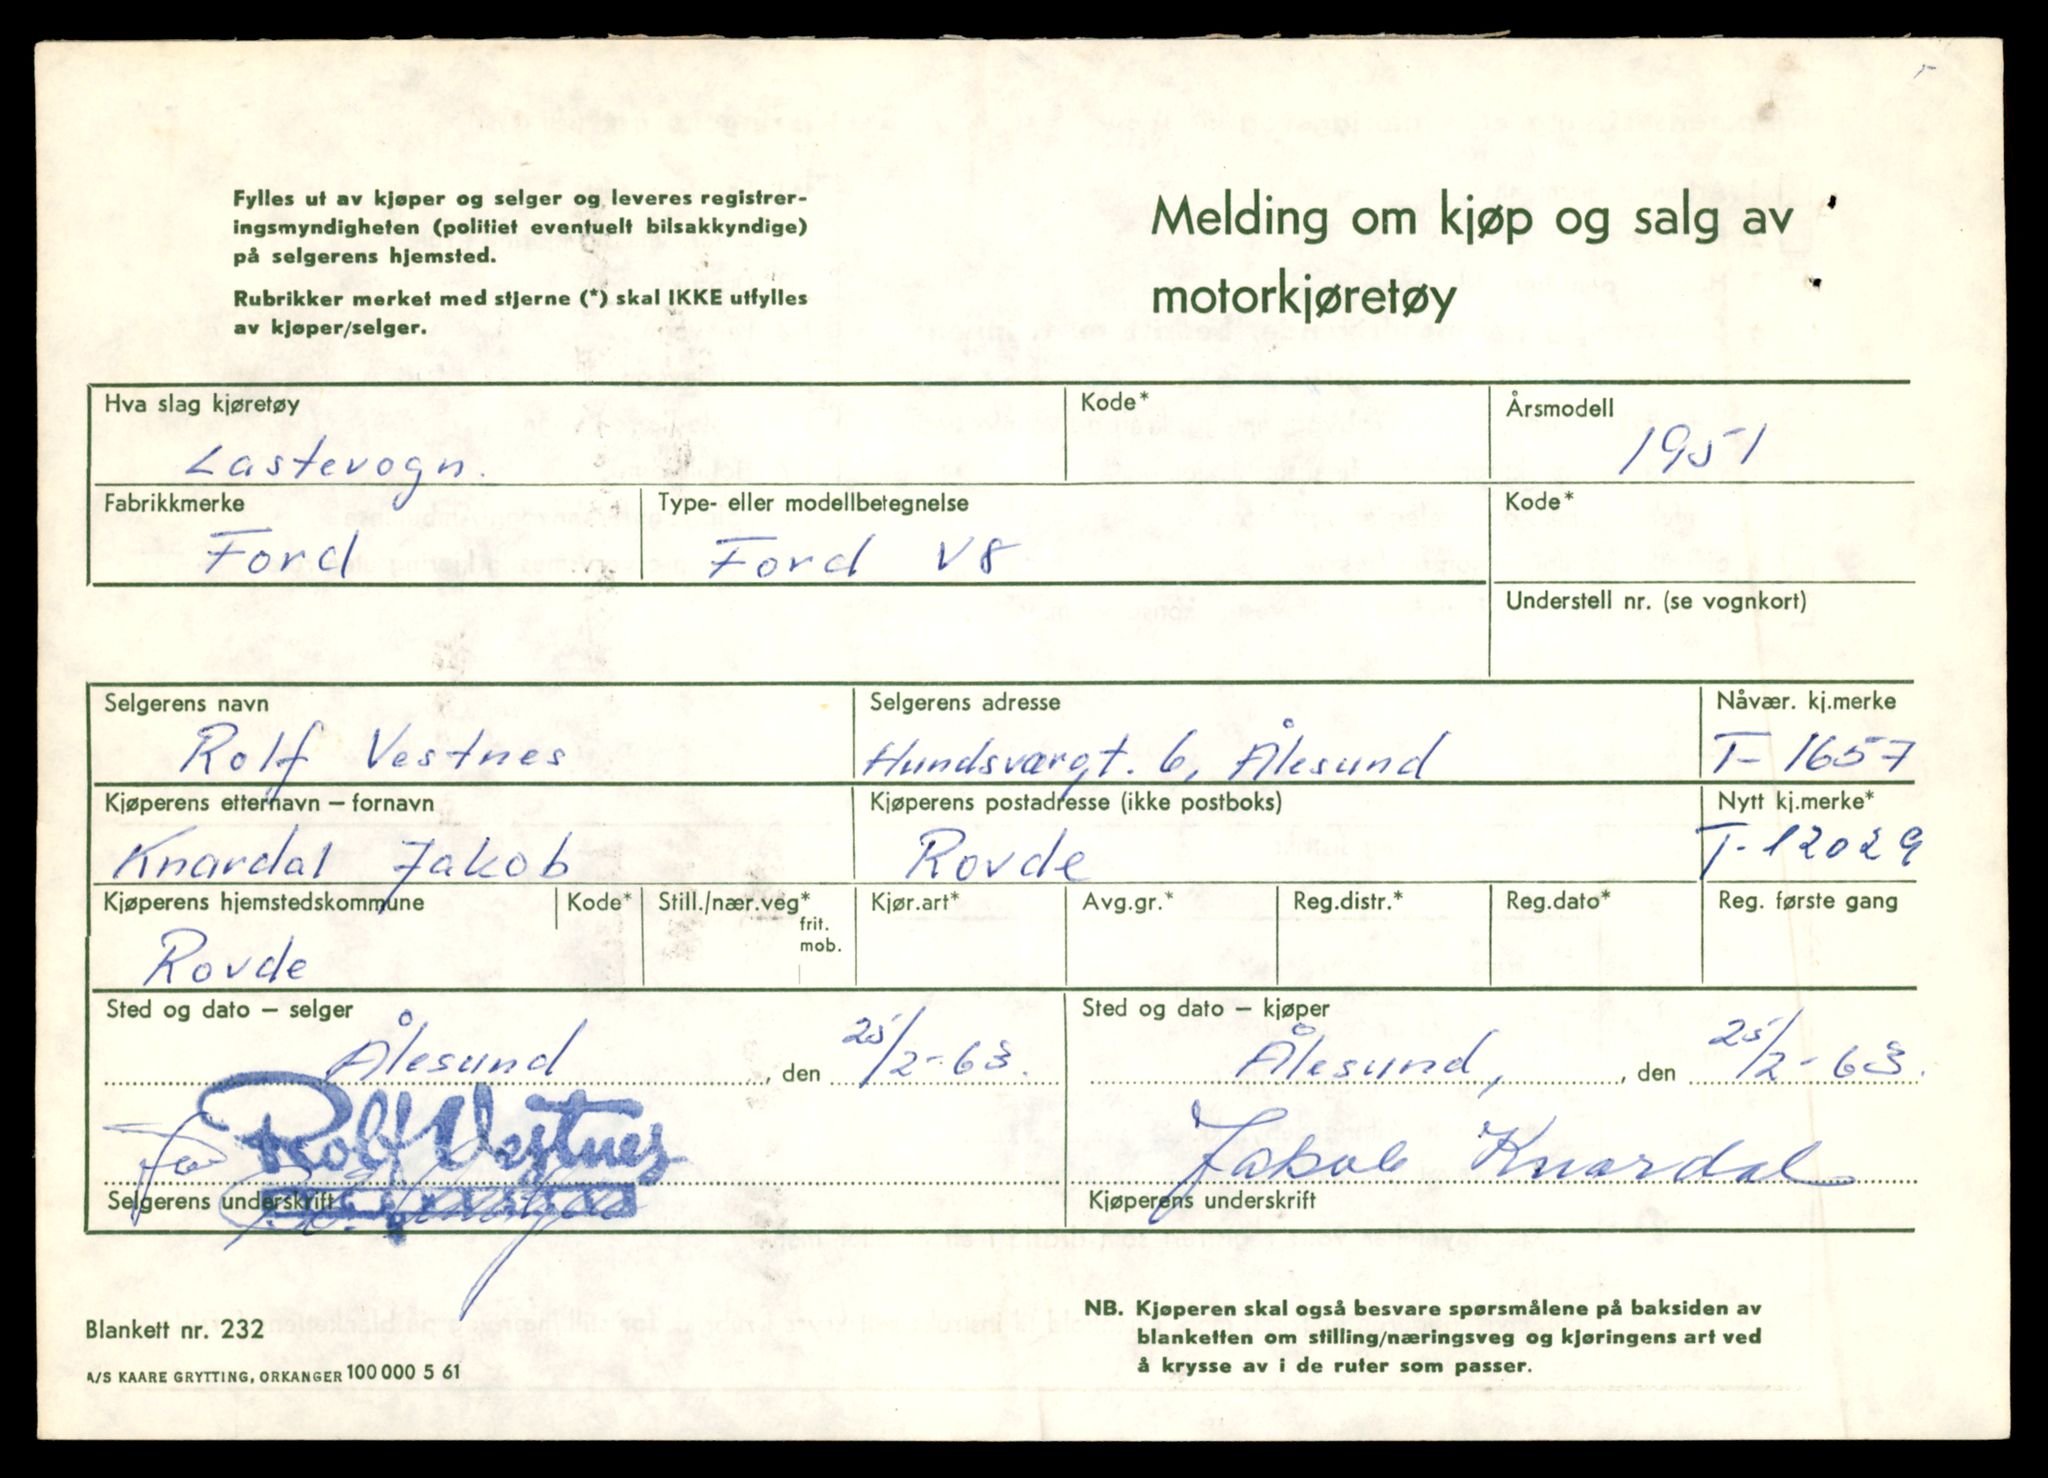 Fylles ut av kjøper og selger og leveres registrer-
ingsmyndigheten (politiet eventuelt bilsakkyndige)
på selgerens hjemsted.
Rubrikker merket med stjerne (*) skal IKKE utfylles
av kjøper/selger.
Melding om kjøp og salg av
motorkjøretøy
Hva slag kjøretøy
Kode*
Årsmodell
Lastevogn.
1951
Fabrikkmerke
Type- eller modellbetegnelse
Kode*
Ford
Ford V8
Understell nr. (se vognkort)
Selgerens navn
Selgerens adresse
Nåvær. kj.merke
Rolf Vestnes
Hundsværgt. 6, Ålesund
T-1657
Kjøperens etternavn – fornavn
Kjøperens postadresse (ikke postboks)
Nytt kj.merke*
Knardal Jakob
Rovde
T-12029
Kjøperens hjemstedskommune
Kode*
Still./nær.veg*
frit.
mob.
Kjør.art*
Avg.gr.*
Reg.distr.*
Reg.dato*
Reg. første gang
Rovde
Sted og dato – selger
Sted og dato – kjøper
Ålesund, den 25/2-63.
Ålesund, den 25/2-63.
for Rolf Vestnes
Jakob Knardal
Selgerens underskrift
Kjøperens underskrift
Blankett nr. 232
A/S KAARE GRYTTING, ORKANGER 100 000 5 61
NB. Kjøperen skal også besvare spørsmålene på baksiden av
blanketten om stilling/næringsveg og kjøringens art ved
å krysse av i de ruter som passer.